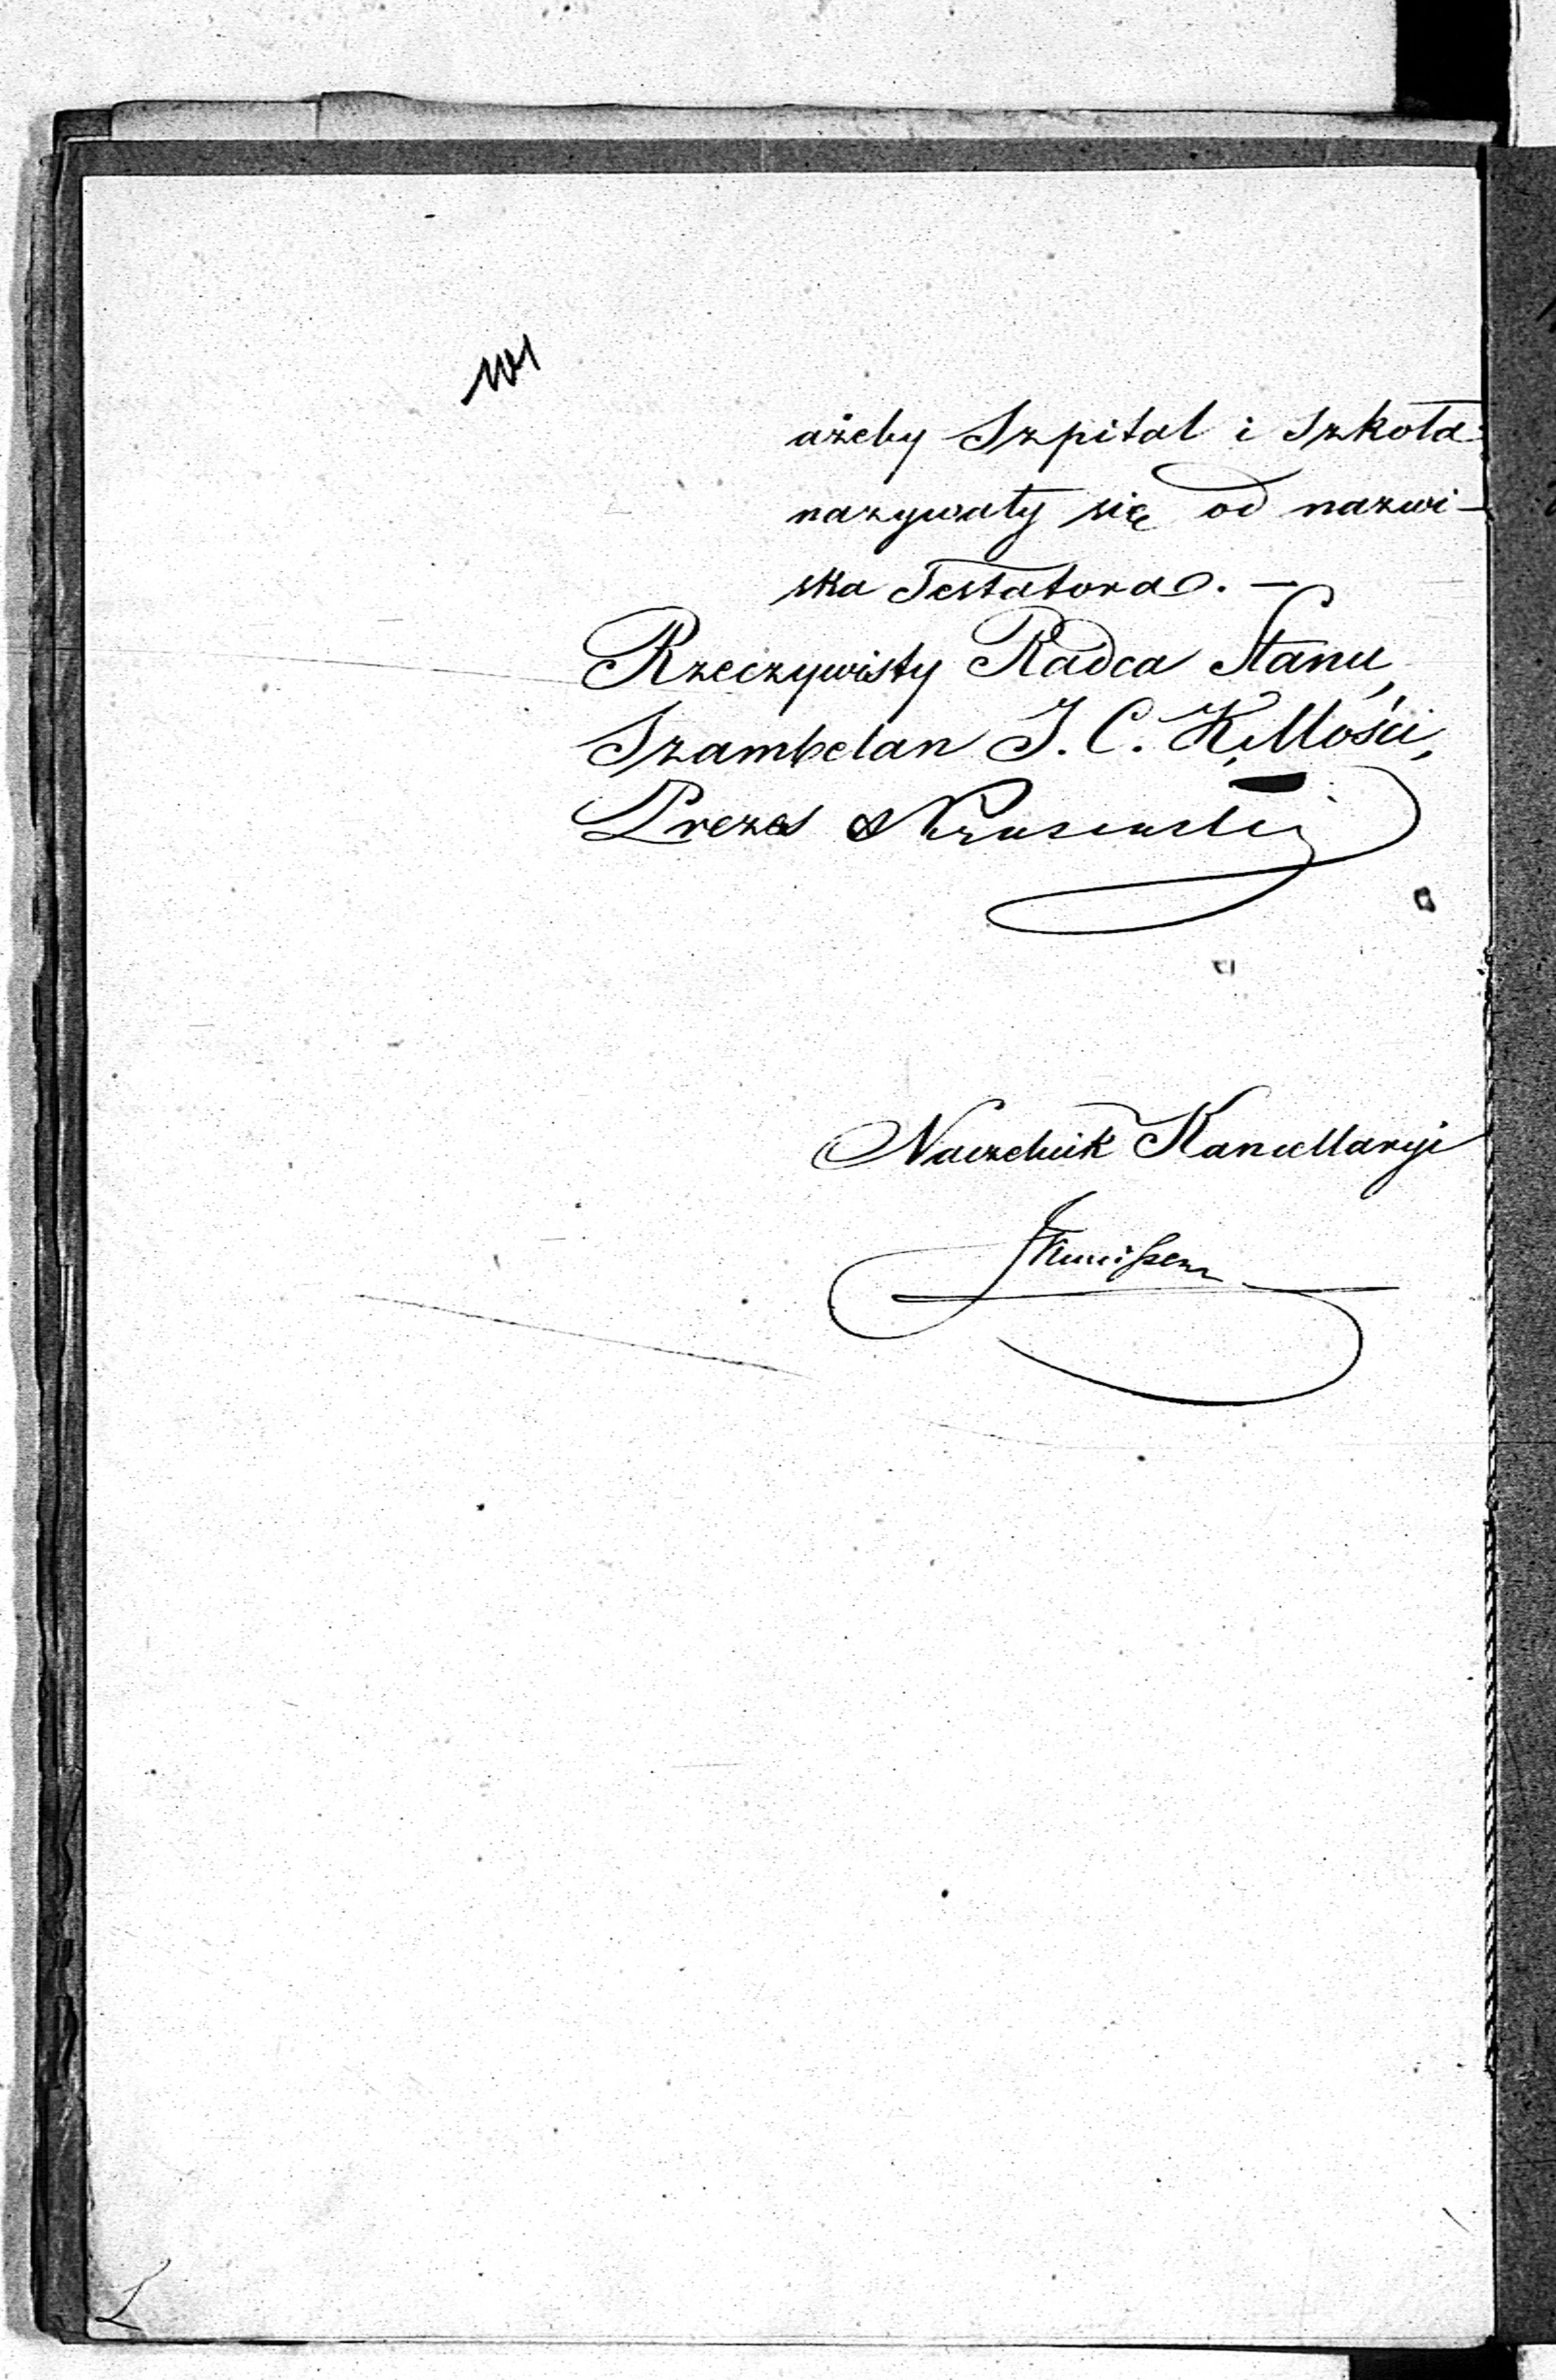 ażeby Szpital i Szkoła
nazywały się od nazwi-
ska Testatora. —
Rzeczywisty Radca Stanu,
Szambelan J. C. K. Mości,
Prezes
Naczelnik Kancellaryi